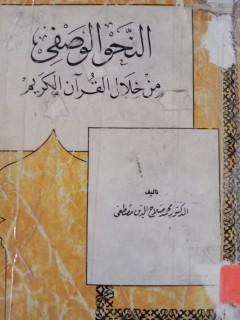 النحو الوصفي
من خلال القرآن الكريم
تأليف
الدكتور محمد صلاح الدين مصطفى